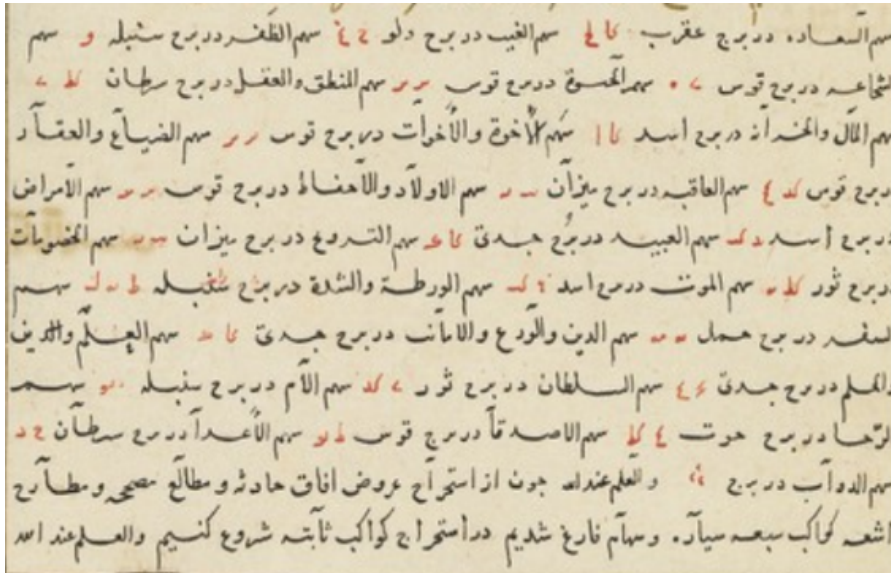 سهم السعاده در برج عقرب سهم الغیب در برج دلو سهم الظفر در برج سنبله و سهم
شجاعه در برج قوس سهم در برج قوس سهم المنطق والعقل در برج سرطان
سهم المال در برج اسد سهم الاخوة والاخوات در برج قوس سهم الضیاع والعقار
در برج قوس سهم العاقبه در برج میزان سهم الاولاد والاحفاط در برج قوس سهم الامراض
در برج اسد سهم العبید در برج جدی سهم التزوج در برج میزان سهم الخصومات
در برج ثور سهم الموت در برج اسد سهم الورطة والشدة در برج سنبله سهم
السفر در برج حمل سهم الدین والورع والامانت در برج جدی سهم العلم
والحلم در برج جدی سهم السلطان در برج ثور سهم الام در برج سنبله سهم
الرجا در برج حوت سهم الاصدقا در برج قوس سهم الاعدا در برج سرطان
سهم الدواب در برج والعلم عند الله چون از استخراج عروض افاق حادثه و مطالع مصححه و مطارح
اشعه کواکب سبعه سیاره وسهام فارغ شدیم در استخراج کواکب ثابته شروع کنیم والعلم عند الله